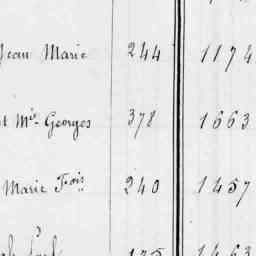 Jean Marie 244 1174
et Mis. Georges 378 1663
Marie Fois 240 1457